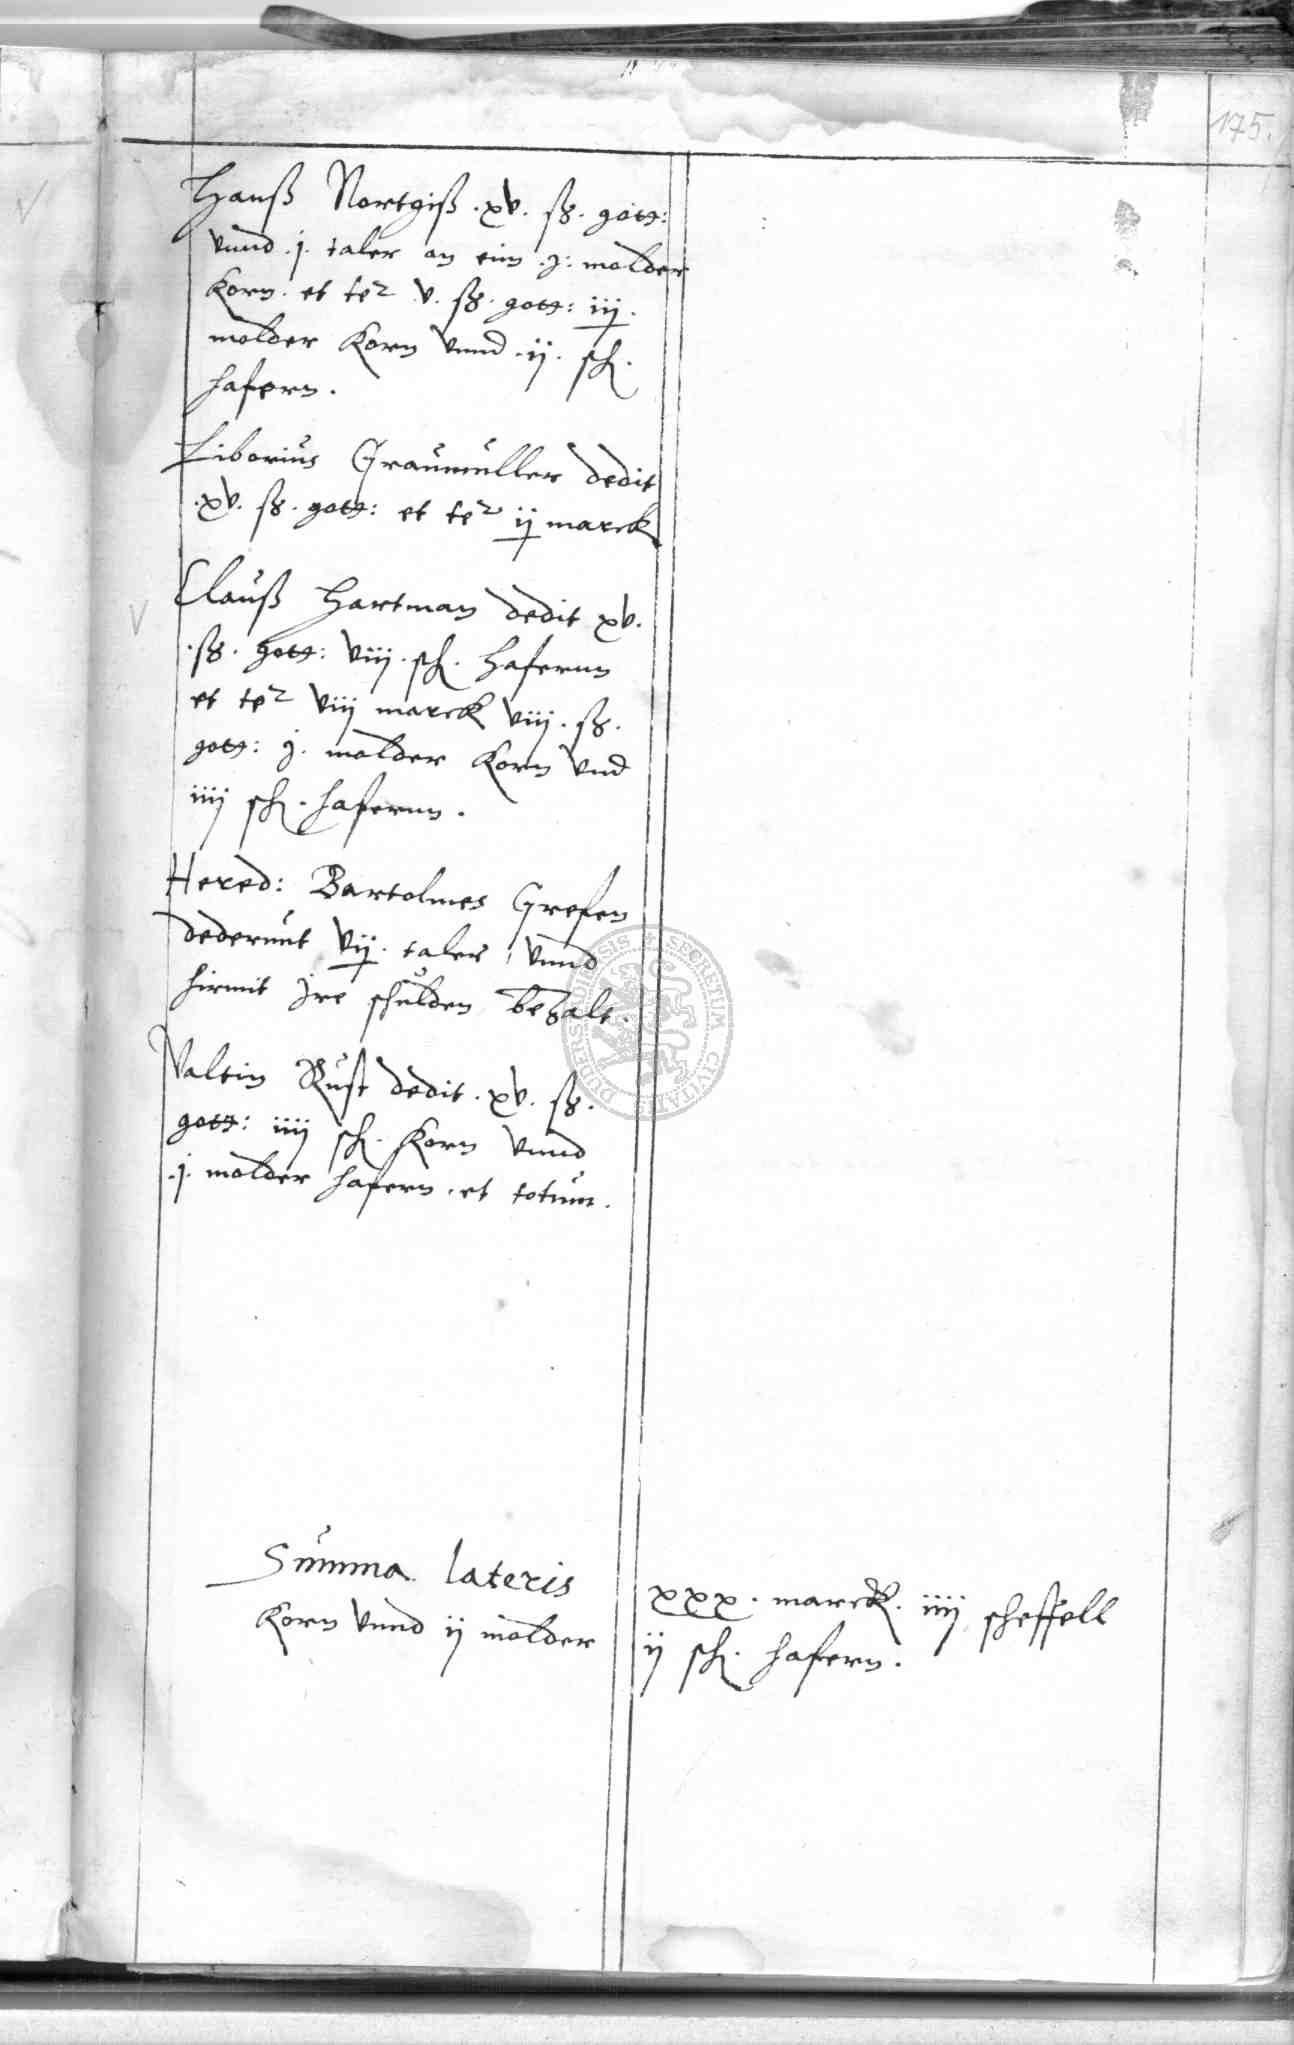 175.
Hanß Nortgiß .xv. ß. gott:
vnnd .j. taler an eim .j. molder
Korn. et te2 .v. ß. gott: iij.
molder Korn vnnd .ij. sch.
hafern.
Liborius Graumuller dedit
.xv. ß. gott: et te2 ij marck
Clauß Hartman dedit xv.
.ß. gott: viij. sch. Hafernn
et te2 viij marck viij. ß.
gott: j. molder Korn vnd
iiij sch. hafernn.
Hered: Bartolmes Grefen
dederunt vij. taler vnnd
hirmit Jre schulden bezalt.
Valtin Rust dedit .xv. ß.
gott: iiij sch. Korn vnnd
.j. molder hafern. et totum.
Summa lateris xxx. marck. iiij scheffell
Korn vnnd ij molder ij sch. hafern.
DUDERSTADIENSIS * SECRETUM CIVITATIS